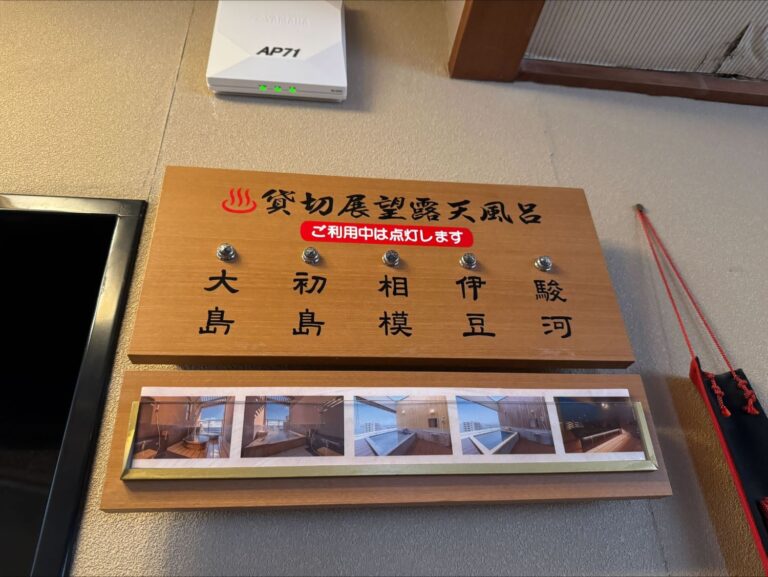 YAMAHA
AP71
貸切展望露天風呂
ご利用中は点灯します
大島 初島 相模 伊豆 駿河